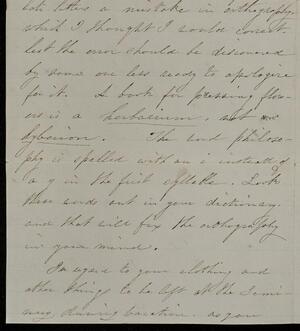 late letters a mistake in orthography,
which I thought I would correct
lest the error should be discovered
by some one less ready to apologize
for it. A book for pressing flow-
ers is a herbarium, not
The word philoso-
phy is spelled with an i instead of
a y in the first syllable. Look
these words out in your dictionary
and that will fix the orthography
in your mind.
In regard to your clothing and
other things to be left at the Semi-
nary during vacation. as you